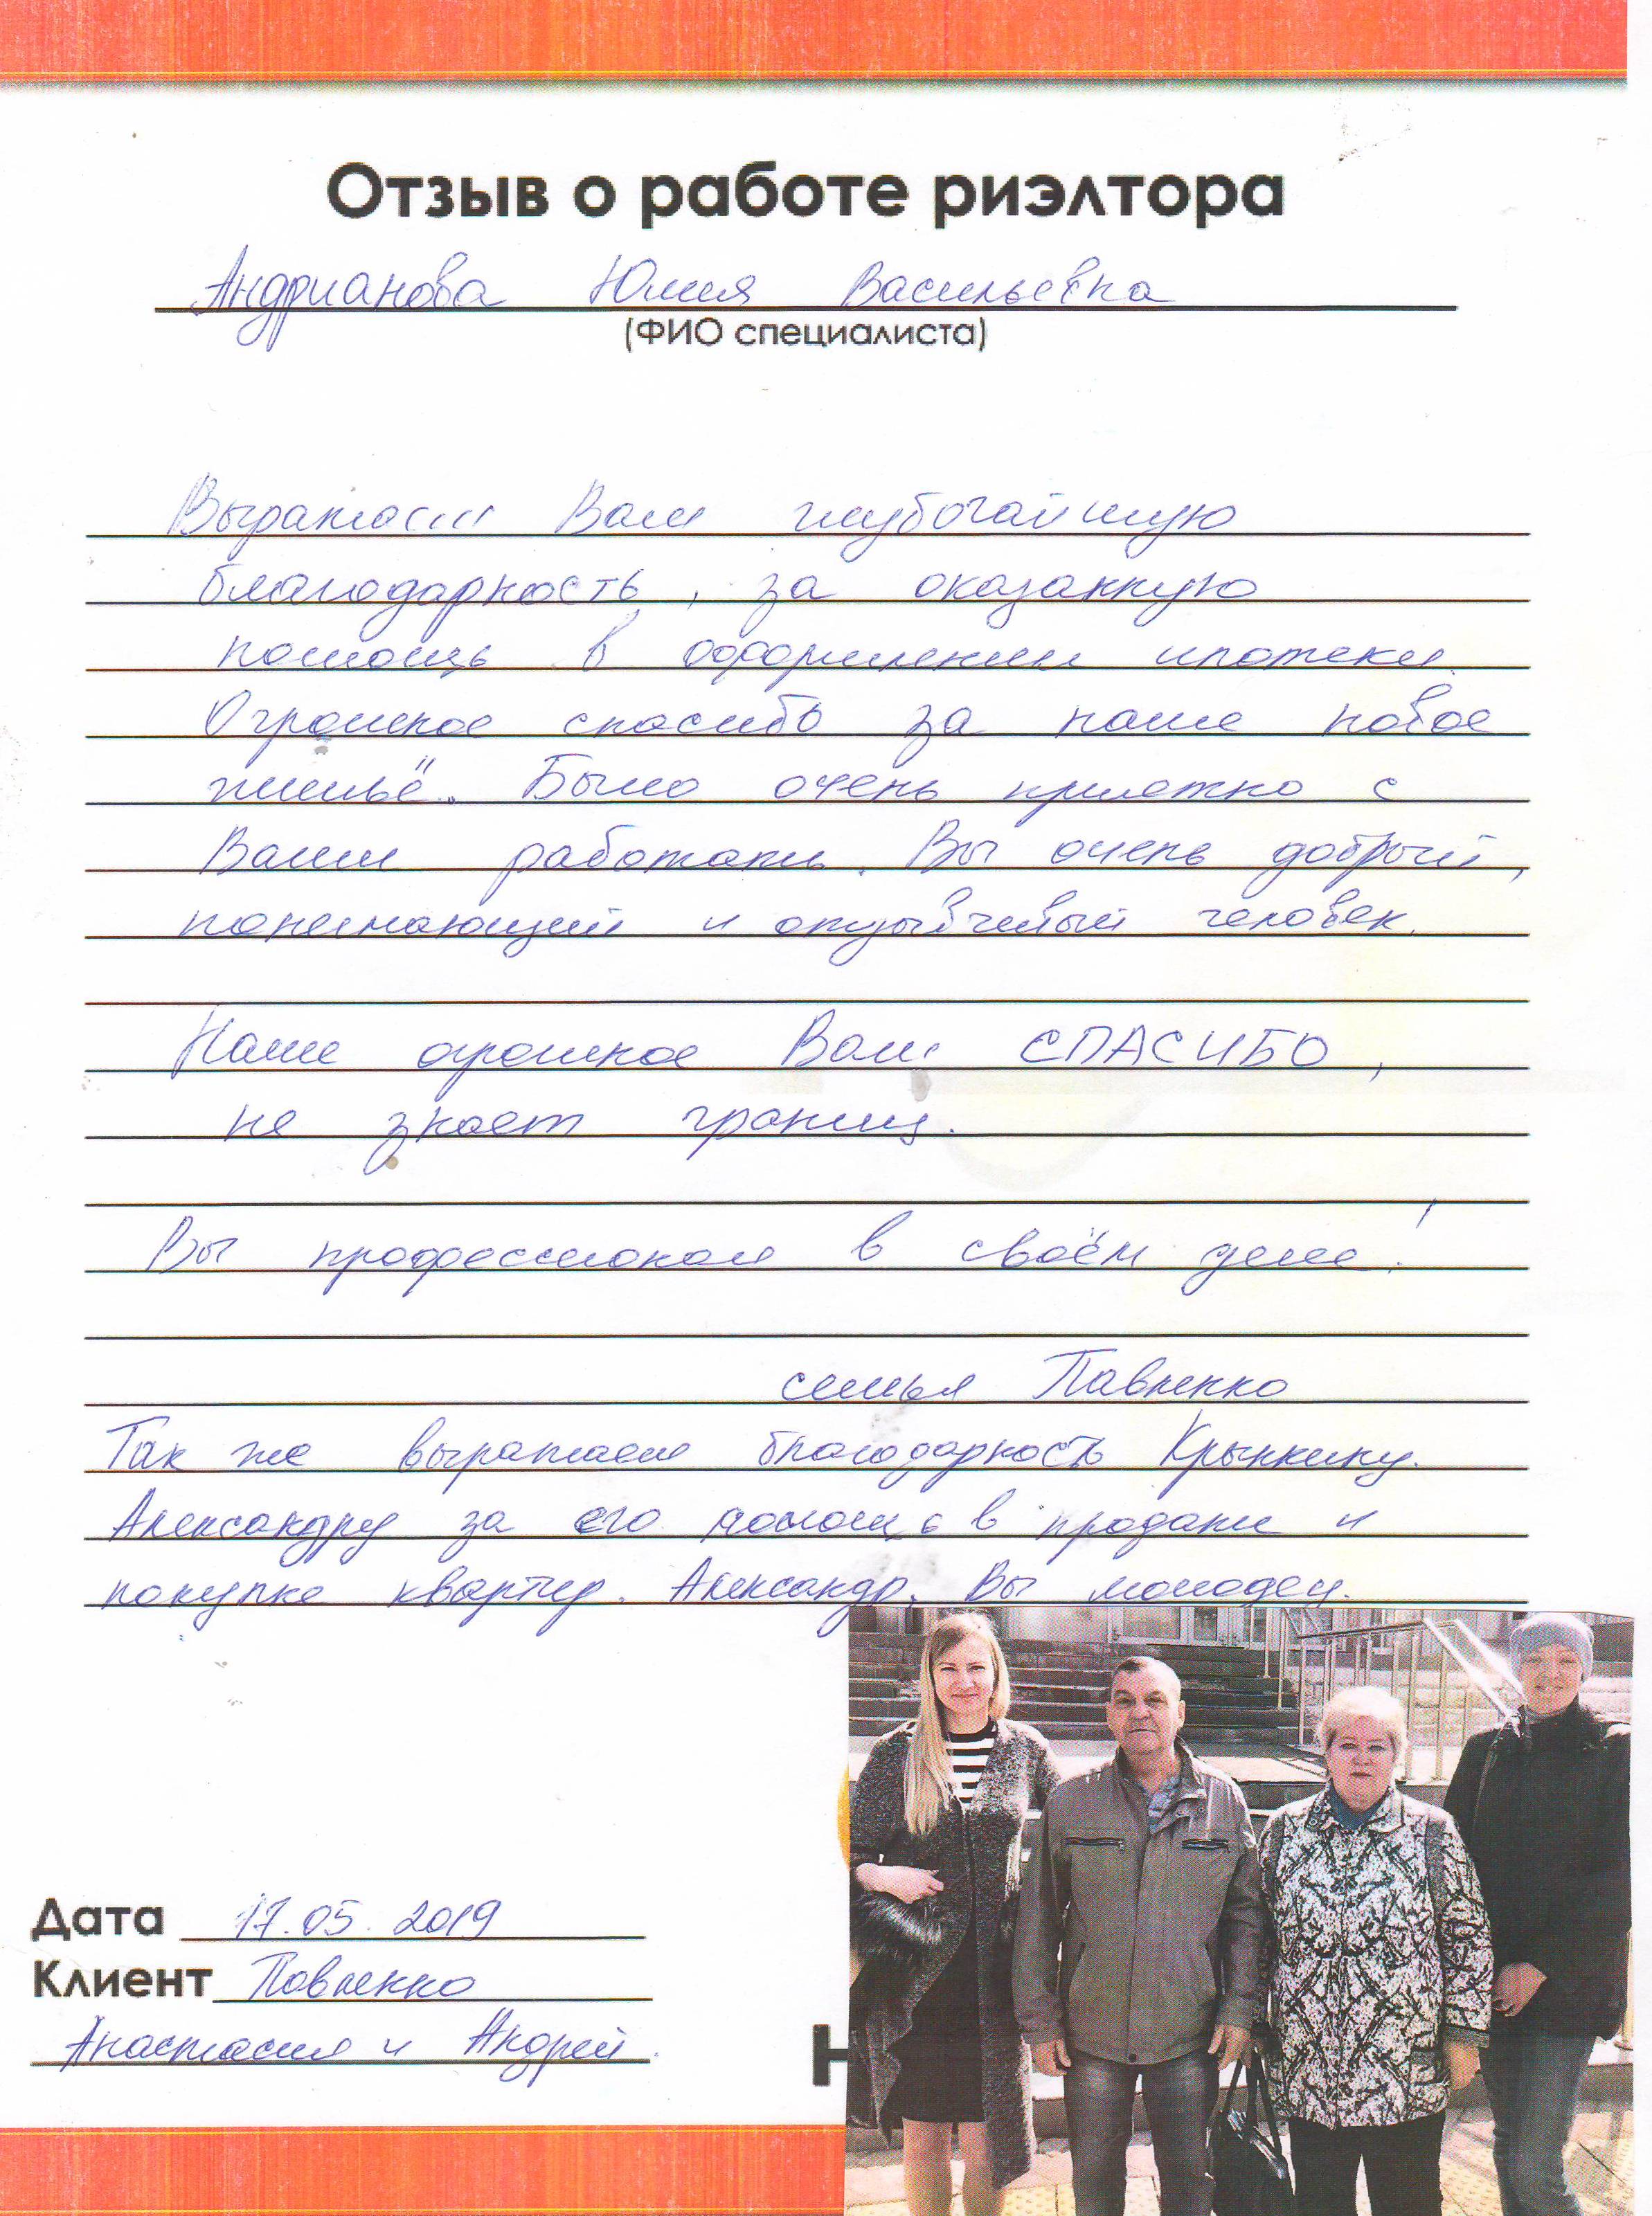 Отзыв о работе риэлтора
Андрианова Юлия Васильевна
(ФИО специалиста)
Выражаем Вам глубочайшую
благодарность, за оказанную
помощь в оформлении ипотеки.
Огромное спасибо за наше новое
жильё. Было очень приятно с
Вами работать. Вы очень добрый,
понимающий и отзывчивый человек.
Наше огромное Вам СПАСИБО,
не знает границ.
Вы профессионал в своём деле!
семья Павленко
Так же выражаем благодарность Крынкину
Александру за его помощь в продаже и
покупке квартир. Александр, Вы молодец.
Дата 17.05.2019
Клиент Павленко
Анастасия и Андрей.
Н